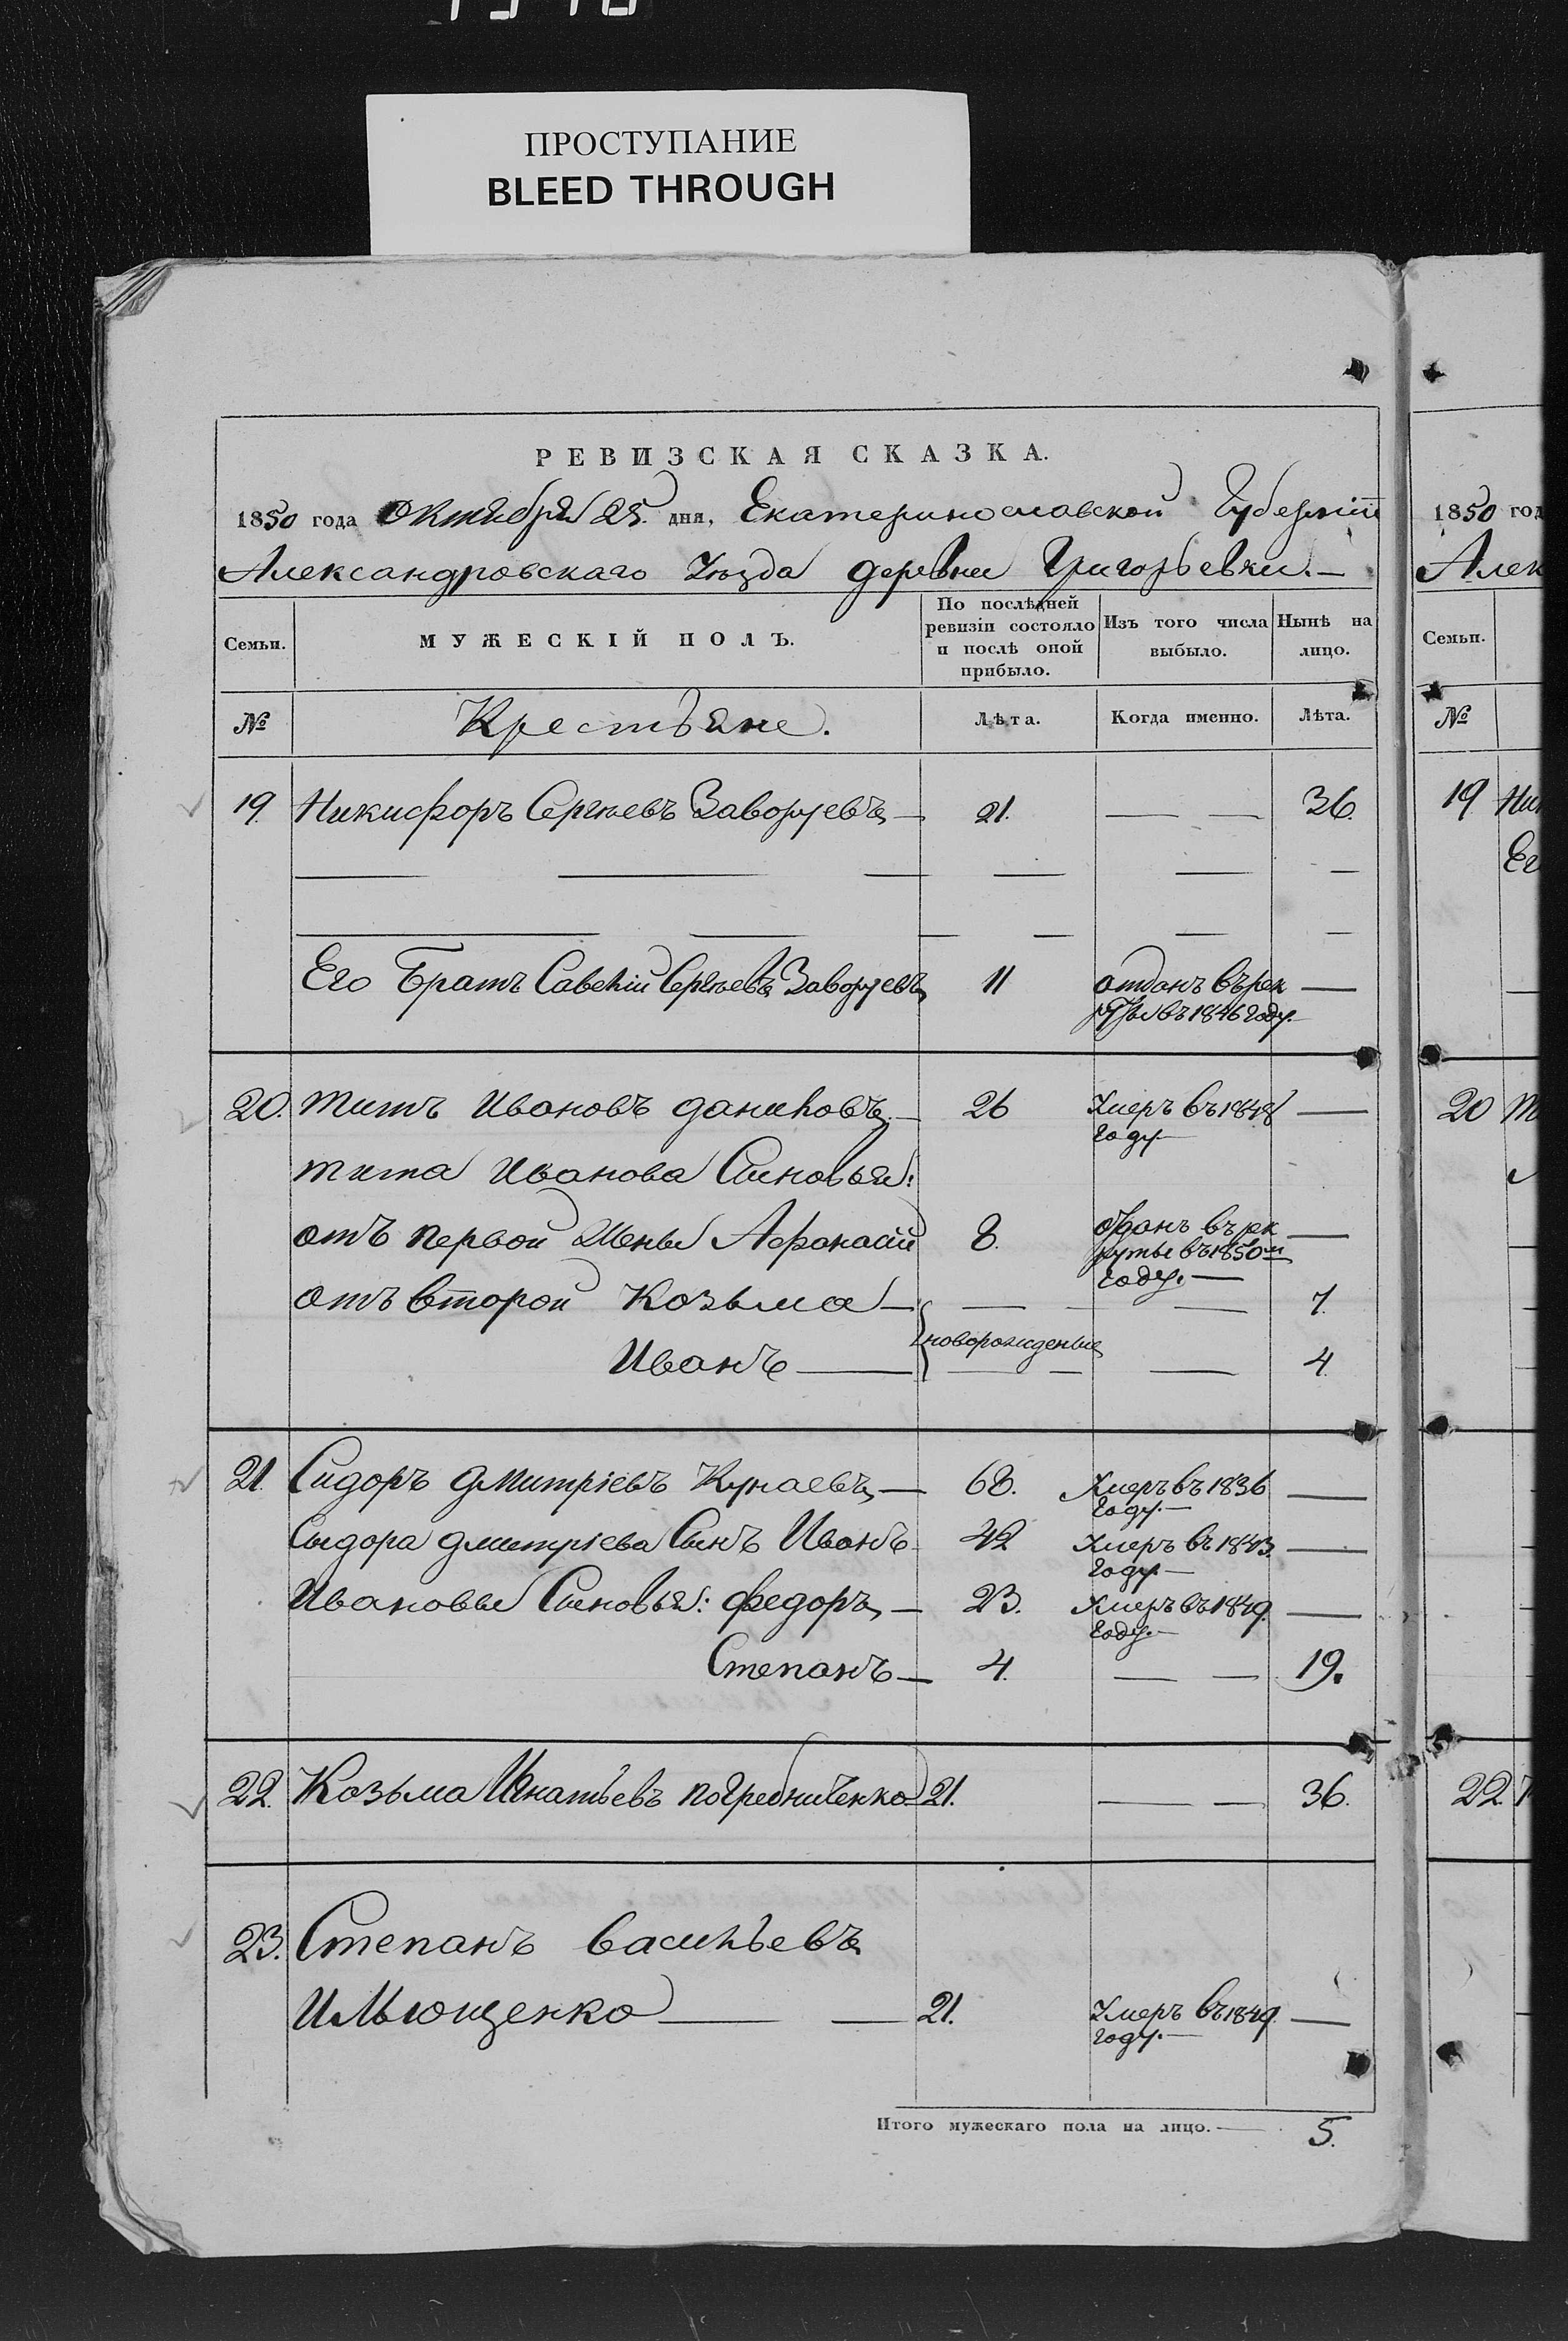 ПРОСТУПАНИЕ
BLEED THROUGH
РЕВИЗСКАЯ СКАЗКА.
1850 года Октября 25. дня, Екатеринославской Губерніи
Александровскаго Уѣзда деревни Григорьевки.—
Семьи.
МУЖЕСКІЙ ПОЛЪ.
По послѣдней ревизіи состояло и послѣ оной прибыло.
Изъ того числа выбыло.
Нынѣ на лицо.
№ Крестьяне. Лѣта. Когда именно. Лѣта.
19. Никифоръ Сергѣевъ 21. — — 36.
Его Братъ Савелій Сергѣевъ 11 отданъ въ рек
руты въ 1846 году.—
20. Титъ Ивановъ Даниловъ.— 26 Умеръ въ 1848 —
году—
Тита Иванова Сыновья:
отъ первой Жены Афанасій 8. отданъ въ рк —
руты въ 1850м
году.—
отъ второй Козьма — — — 7.
новорожденые
Иванъ — — — 4.
21. Сидоръ Дмитріевъ Кунаевъ,— 68. Умеръ въ 1836 —
году.—
Сидора Дмитріева Сынъ Иванъ 42 Умеръ въ 1843. —
году.—
Ивановы Сыновья: Федоръ,— 23. Умеръ въ 1849. —
году.—
Степанъ — 4. — — 19.
22. Козьма Игнатьевъ Погребниченко 21. — — 36.
23. Степанъ Васильевъ
Ильющенко — — 21. Умеръ въ 1849. —
году.—
Итого мужескаго пола на лицо.— 5.
1850 год
Алек
Семьи.
№
19
Ег
20
22.